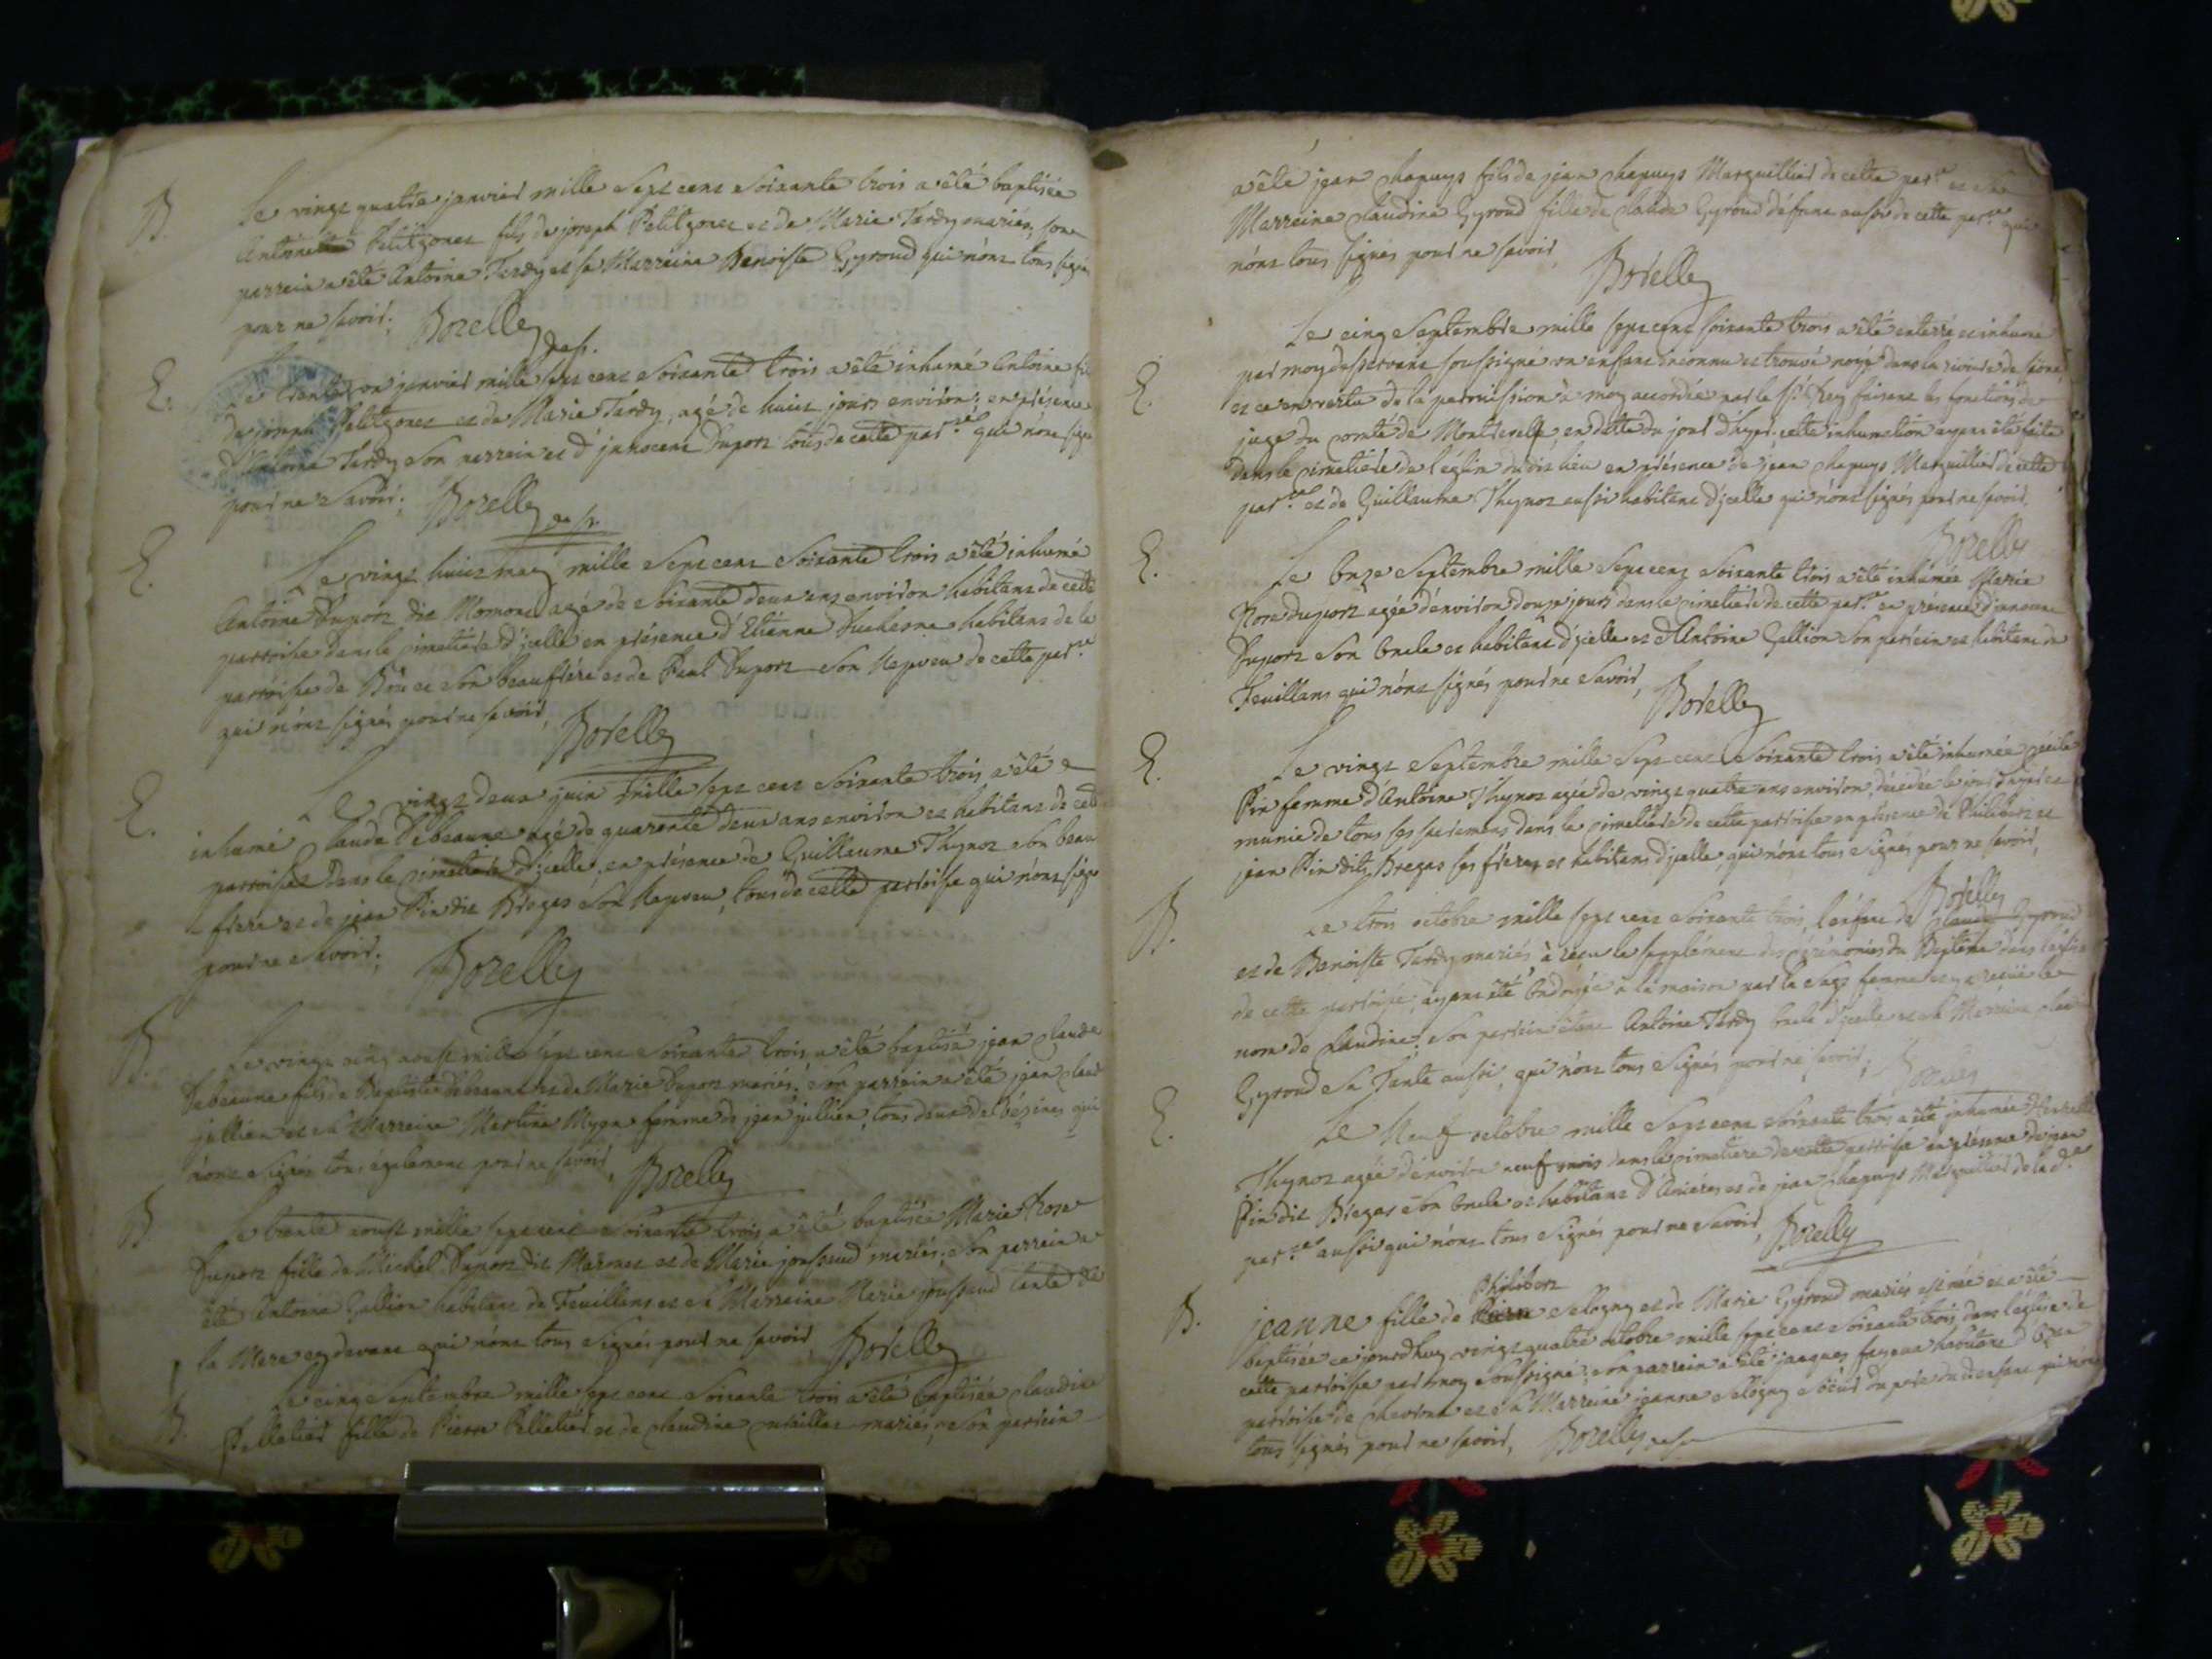 B. Le vingt quatre janvier mille sept cent soixante trois a été baptisée
Antoine Petitzonet fils de joseph Petitzonet et de Marie Tardy mariés, son
parrein a été Antoine Tardy et sa Marreine Benoiste Gyroud qui n'ont tous signés
pour ne savoir. Borelly desr.
E. Le trente un janvier mille sept cent soixante trois a été inhumé Antoine fils
de joseph Petitzonet et de Marie Tardy, agé de huict jours environ; en présence
d'Antoine Tardy son parrein et d'jnnocent Duport tous de cette par.se qui n'ont signé
pour ne savoir. Borelly desr.
E. Le vingt huict may mille sept cent soixante trois a été inhumé
Antoine Duport dit agé de soixante deux ans environ habitant de cette
parroisse dans le cimetiere d'jcelle en présence d'Etienne Duchesne habitant de la
parroisse de son beaufrére et de Paul Duport son Nepveu de cette par.se
qui n'ont signés pour ne savoir, Borelly
E. Le vingt deux juin mille sept cent soixante trois a été
inhumé Claude Debeaune agé de quarante deux ans environ et habitant de cette
parroisse dans le cimetiere d'jcelle, en présence de Guillaume Thynot son beau
frere et de jean Pin dit Bregas son Nepveu, tous de cette parroisse qui n'ont signé
pour ne savoir. Borelly
B. Le vingt cinq aoust mille sept cent soixante trois a été baptisé jean Claude
Debeaune fils de Baptiste Debeaune et de Marie Duport mariés: son parrain a été jean Claude
jullien et sa Marreine Martine femme de jean jullien, tous deux de qui
n'ont signés tous également pour ne savoir, Borelly
B. Le trente aoust mille sept cent soixante trois a été baptisée Marie Rose
Duport fille de Michel Duport dit et de Marie joussaud mariés; son parrein a
été Antoine Gallion habitant de Feuillans et sa Marreine Marie joussaud tante de
la Mere cydevant qui n'ont tous signés pour ne savoir, Borelly
B. Le cinq septembre mille sept cent soixante trois a été baptisée Claudine
Pelletier fille de Pierre Pelletier et de Claudine mariés, son parrein
a été jean Chapuys fils de jean Chapuys Marguillier de cette par.se et sa
Marreine Claudine Gyroud fille de Claude Gyroud défunt aussi de cette par.se qui
n'ont tous signés pour ne savoir, Borelly
E. Le cinq septembre mille sept cent soixante trois a été enterré et inhumé
par moy desservant soussigné un enfant inconnu et trouvé noyé dans la riviere de
et ce en vertu de la permission à moy accordée par le Sr. faisant les fonctions de
juge du comté de en datte du jour d'hyer: cette inhumation ayant été faite
dans le cimetiere de l'eglise dudit lieu en présence de jean Chapuys Marguillier de cette
par.se et de Guillaume Thynot aussi habitant d'jcelle qui n'ont signés pour ne savoir.
Borelly
E. Le onze septembre mille sept cent soixante trois a été inhumée Marie
Rose Duport agée d'environ douze jours dans le cimetiere de cette par.se en présence d'jnnocent
Duport son oncle et habitant d'jcelle et d'Antoine Gallion son parrein et habitant de
Feuillans qui n'ont signés pour ne savoir, Borelly
E. Le vingt septembre mille sept cent soixante trois a été inhumée
Pin femme d'Antoine Thynot agée de vingt quatre ans environ, décédée le jour d'hyer et
munie de tous ses sacremens dans le cimetiere de cette parroisse en présence de Philibert et
jean Pin dits Bregas ses fréres et habitans d'jcelle, qui n'ont tous signés pour ne savoir,
Borelly
B. Le trois octobre mille sept cent soixante trois, l'enfant de Claude Gyroud
et de Benoiste Tardy mariés à reçu le supplément des cérémonies du Baptême dans l'église
de cette parroisse, ayant été ondoyée à la maison par la sage femme et y a reçue le
nom de Claudine: son parrein étant Antoine Tardy oncle d'jcelle et sa Marreine
Gyroud sa Tante aussi, qui n'ont tous signés pour ne savoir, Borelly
E. Le Neuf octobre mille sept cent soixante trois a été inhumée
Thynot agée d'environ neuf mois dans le cimetiere de cette parroisse en présence de jean
Pin dit Bregas son oncle et habitant d' et de jean Chapuys Marguillier de la d.te
par.se aussi qui n'ont tous signés pour ne savoir, Borelly
Philibert
B. jeanne fille de Pierre Sellogny et de Marie Gyroud mariés est née et a été
baptisée ce jourdhuy vingt quatre octobre mille sept cent soixante trois dans l'église de
cette parroisse par moy soussigné: son parrein a été jacques habitant
parroisse de et sa Marreine jeanne Sellogny soeur du pere dudit enfant qui n'ont
tous signés pour ne savoir, Borelly desr.